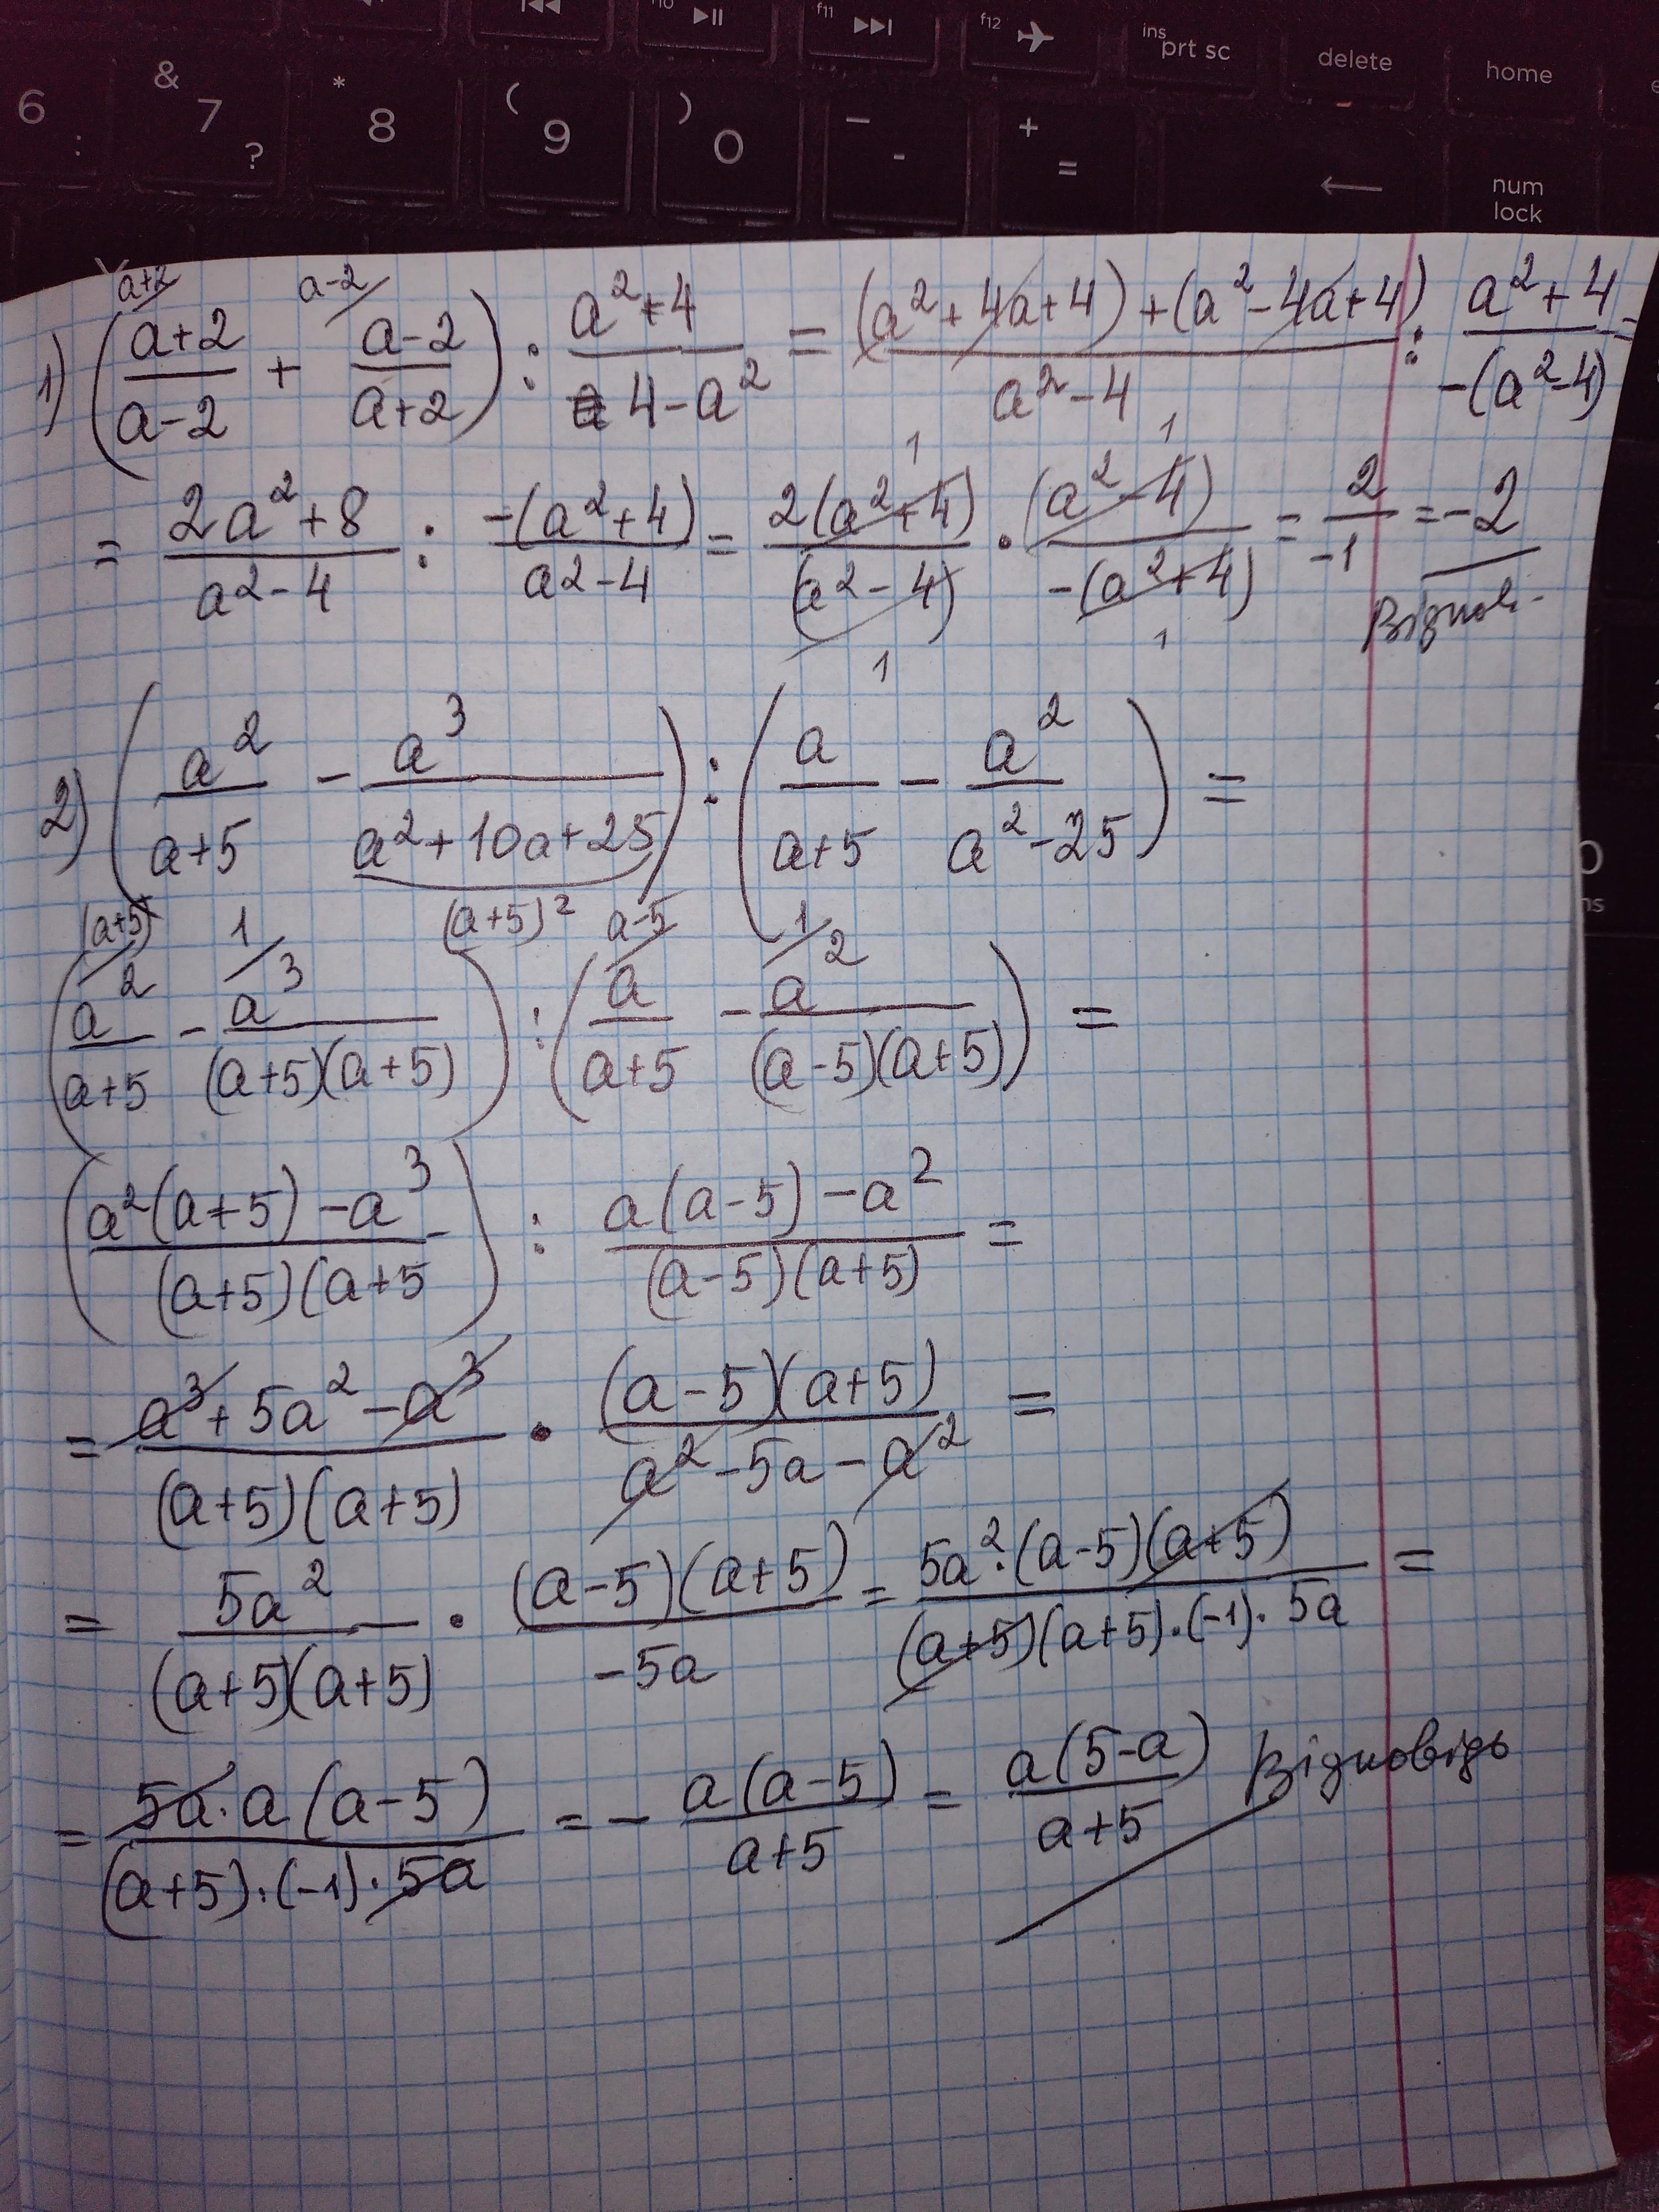 f10 f11 f12 ins prt sc delete home
6 : & 7 ? * 8 ( 9 ) 0 - - + = ← num lock
a+2 a-2
1) (a+2/a-2 + a-2/a+2) : a²+4/4-a² = (a²+4a+4)+(a²-4a+4)/a²-4 : a²+4/-(a²-4) =
= 2a²+8/a²-4 : -(a²+4)/a²-4 = 2(a²+4)/(a²-4) · (a²-4)/-(a²+4) = 2/-1 = -2
1 1 1 1
2) (a²/a+5 - a³/a²+10a+25) : (a/a+5 - a²/a²-25) =
(a+5) 1 (a+5)² a-5 1
(a²/a+5 - a³/(a+5)(a+5)) : (a/a+5 - a²/(a-5)(a+5)) =
(a²(a+5)-a³/(a+5)(a+5) : a(a-5)-a²/(a-5)(a+5) =
= a³+5a²-a³/(a+5)(a+5) · (a-5)(a+5)/a²-5a-a² =
= 5a²/(a+5)(a+5) · (a-5)(a+5)/-5a = 5a²·(a-5)(a+5)/(a+5)(a+5)·(-1)·5a =
= 5a·a(a-5)/(a+5)·(-1)·5a = - a(a-5)/a+5 = a(5-a)/a+5 Відповідь